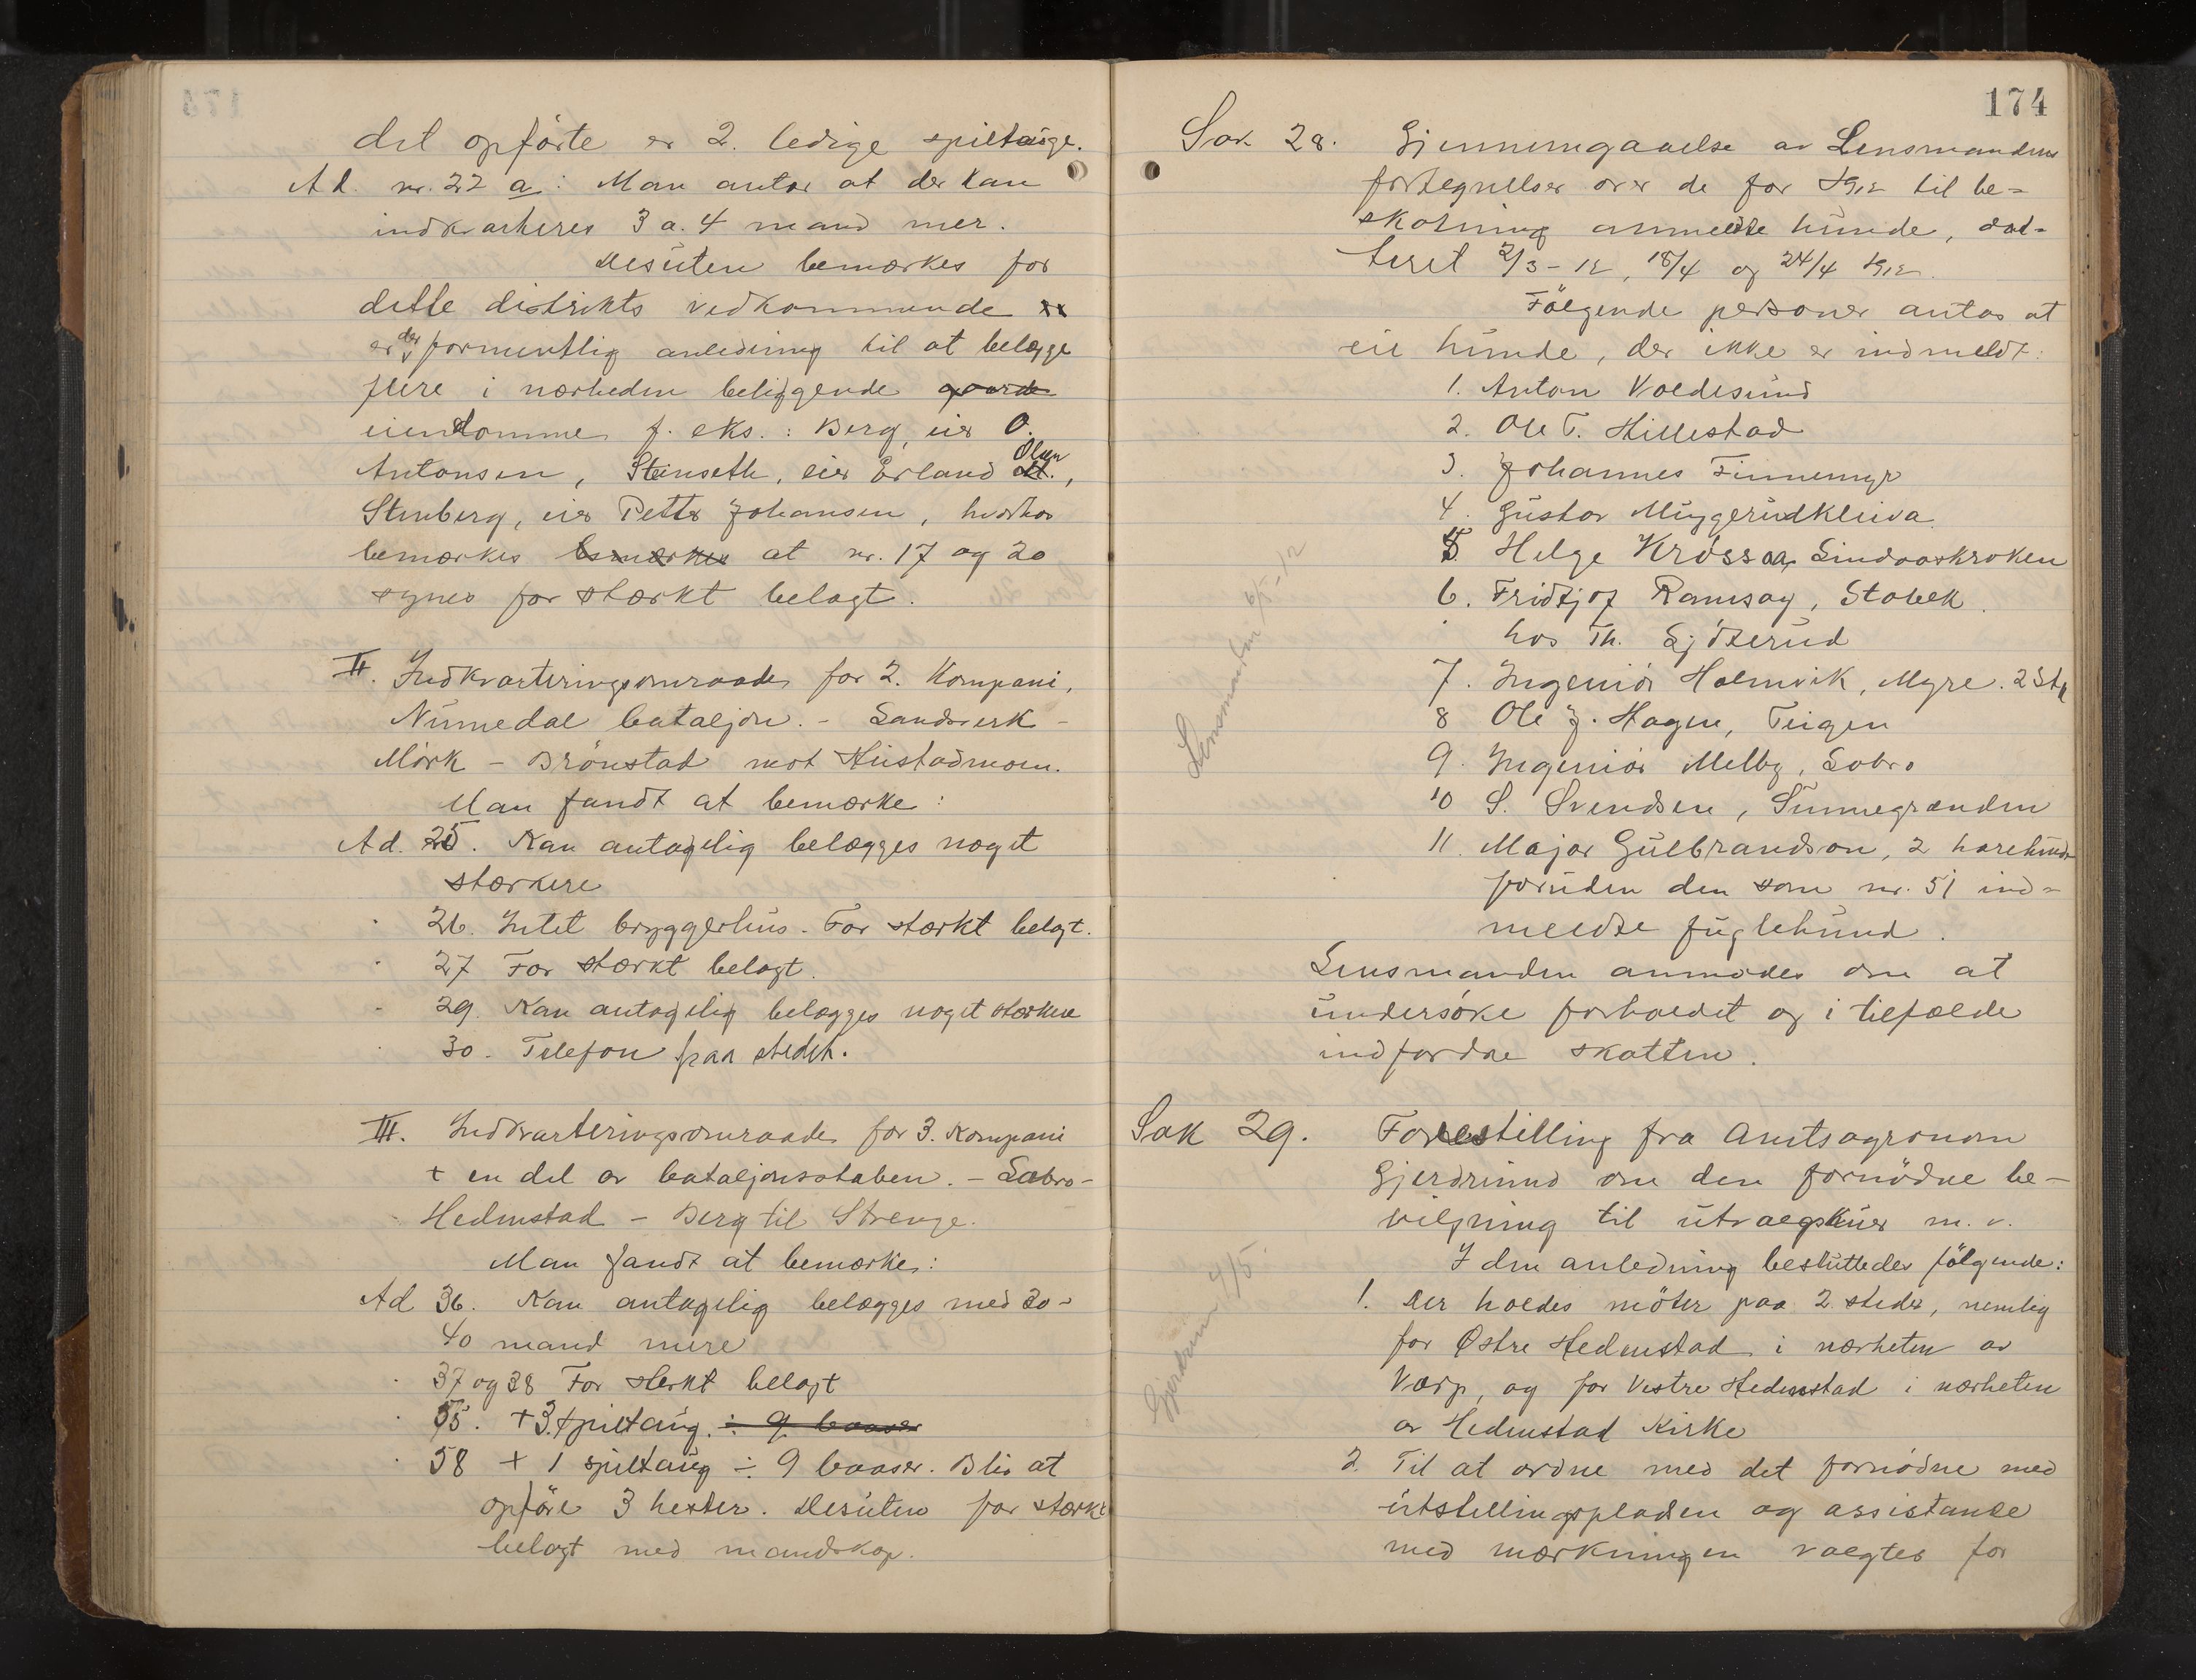 det opførte er 2. ledige spiltauge.
Ad. nr. 22 a: Man antar at der kan
indkvarteres 3 a. 4 mand mer.
Desuten bemærkes for
dette distrikts vedkommende
er der formentlig anledning til at belægge
flere i nærheden beliggende gaarde
eiendomme f. eks.: Berg, eier O.
Antonsen, Steinseth, eier Erland Olsen,
Stenberg, eier Petter Johansen, hvorhos
bemærkes bemærkes at nr. 17 og 20
synes for stærkt belagt.
II. Indkvarteringsomraade for 2. Kompani,
Numedal bataljon. - Sandsverk -
Mørk - Brønstad mot Hustadmoen.
Man fandt at bemærke:
Ad. 25. Kan antagelig belægges noget
stærkere
" 26. Intet bryggerhus. For stærkt belagt.
" 27 For stærkt belagt.
" 29. Kan antagelig belægges noget stærkere
" 30. Telefon paa stedet.
III. Indkvarteringsomraade for 3. Kompani
+ en del av bataljonsstaben. - Labro -
Hedenstad - Berg til Strenge.
Man fandt at bemærke:
Ad 36. Kan antagelig belægges med 30-
40 mand mere
" 37 og 38 For sterkt belagt
" 55. +3. spiltaug. ÷ 9 baaser
" 58 + 1 spiltaug ÷ 9 baaser. Blir at
opføre 3 hester. Desuten for stærkt
belagt med mandskap.
174
Sak 28. Gjennemgaaelse av Lensmandens
fortegnelser over de for 1912 til be-
skatning anmeldte hunde, dat-
teret 2/3-12, 18/4 og 24/4 1912.
Følgende personer antas at
eie hunde, der ikke er indmeldt:
1. Anton Voldesund
2. Ole T. Hillestad
3. Johannes Finnemyr
4. Gustav Muggerudkleiva.
5. Helge Krøssaa, Lindaaskroken
6. Fridtjof Ramsay, Stabek.
hos Th. Sjøterud
7. Ingeniør Holmvik, Myre. 2 Stk
8 Ole J. Hagen, Teigen
9. Ingeniør Melby, Labro
10 S. Svendsen, Sunnegrenden
11. Major Gulbrandson, 2 harehunde
foruden den som nr. 51 ind-
meldte fuglehund.
Lensmanden anmodes om at
undersøke forholdet og i tilfælde
indfordre skatten.
Lensmanden 6/5-12
Sak 29. Forestilling fra Amtsagronom
Gjerdrum om den fornødne be-
vilgning til utvalgskuer m. v.
I den anledning besluttedes følgende:
1. Der holdes møter paa 2 steder, nemlig
for Østre Hedenstad i nærheten av
Varp, og for Vestre Hedenstad i nærheten
av Hedenstad Kirke
2. Til at ordne med det fornødne med
utstillingspladsen og assistance
med mærkningen valgtes for
Gjerdrum 4/5.